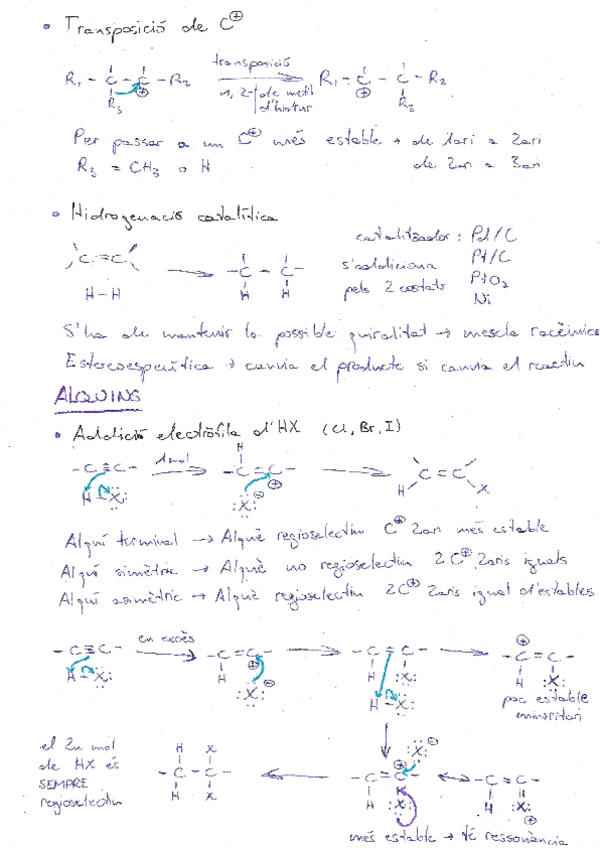 • Transposició de C⊕
R₁ - C - C - R₂ transposició R₁ - C - C - R₂
R₃ ⊕ 1, 2- de metil ⊕ R₂
d'hidrur
Per passar a un C⊕ més estable → de 1ari a 2ari
R₃ = CH₃ o H de 2ari a 3ari
• Hidrogenació catalítica
catalitzador: Pd/C
C=C → - C - C - s'addiciona Pt/C
H-H H H pels 2 costats PtO₂
Ni
S'ha de mantenir la possible quiralitat → mescla racèmica
Estereoespecífica → canvia el producte si canvia el reactiu
ALQUINS
• Addició electròfila d'HX (Cl, Br, I)
H
-C≡C- 1 mol -C=C- → C=C
H-X: :X:⊖ ⊕ H X
Alquí terminal → Alquè regioselectiu C⊕ 2ari més estable
Alquí simètric → Alquè no regioselectiu 2 C⊕ 2aris iguals
Alquí asimètric → Alquè regioselectiu 2C⊕ 2aris igual d'estables
-C≡C- en excés -C=C- → -C=C- → ⊕ -C=C-
H-X: H ⊕ H :X: H :X:
:X:⊖ H-X: poc estable
minoritari
el 2n mol H X :X:⊖
de HX és -C-C- ← -C=C- ↔ -C=C-
SEMPRE H X H :X: H :X:
regioselectiu ⊕
més estable → té ressonància